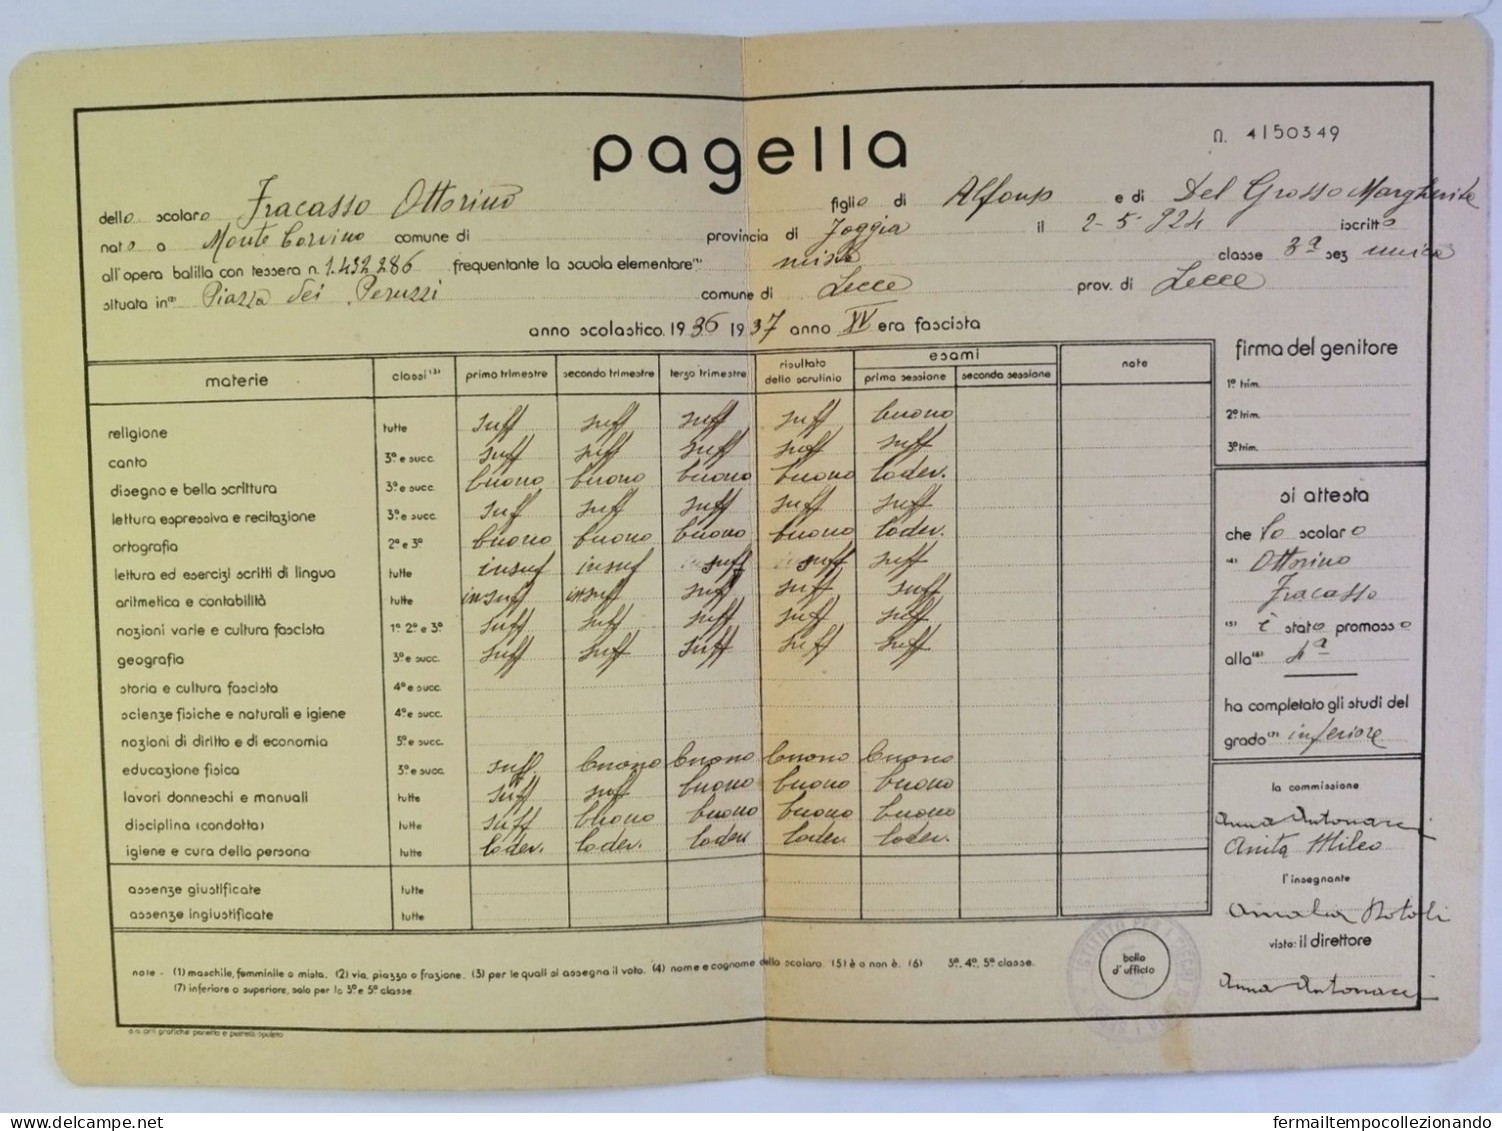 pagella
n. 4150349
dello scolaro Fracasso Ottorino figlio di Alfonso e di Del Grosso Margherita
nato a Monte Corvino comune di provincia di Foggia il 2-5-924 iscritto
all'opera balilla con tessera n. 1.432286 frequentante la scuola elementare (1) mista classe 3ª sez unica
situata in (2) Piazza dei Peruzzi comune di Lecce prov. di Lecce
anno scolastico 1936 1937 anno XV era fascista
materie classi (3) primo trimestre secondo trimestre terzo trimestre risultato dello scrutinio esami prima sessione seconda sessione note
religione tutte suff suff suff suff buono
canto 3ª e succ. suff suff suff suff suff
disegno e bella scrittura 3ª e succ. buono buono buono buono lodev.
lettura espressiva e recitazione 3ª e succ. suff suff suff suff suff
ortografia 2ª e 3ª buono buono buono buono lodev.
lettura ed esercizi scritti di lingua tutte insuf insuf suff suff suff
aritmetica e contabilità tutte insuff insuff suff suff suff
nozioni varie e cultura fascista 1ª 2ª e 3ª suff suff suff suff suff
geografia 3ª e succ. suff suff suff suff suff
storia e cultura fascista 4ª e succ.
scienze fisiche e naturali e igiene 4ª e succ.
nozioni di diritto e di economia 5ª e succ.
educazione fisica 3ª e succ. suff. buono buono buono buono
lavori donneschi e manuali tutte suff suff buono buono buono
disciplina (condotta) tutte suff buono buono buono buono
igiene e cura della persona tutte lodev. lodev. lodev lodev. lodev.
assenze giustificate tutte
assenze ingiustificate tutte
note - (1) maschile, femminile o mista. (2) via, piazza o frazione. (3) per le quali si assegna il voto. (4) nome e cognome dello scolaro. (5) è o non è. (6) 3ª, 4ª, 5ª classe.
(7) inferiore o superiore, solo per la 3ª e 5ª classe.
firma del genitore
1º trim.
2º trim.
3º trim.
si attesta
che lo scolaro
(4) Ottorino
Fracasso
(5) è stato promosso
alla (6) 4ª
ha completato gli studi del
grado (7) inferiore
la commissione
Anna Antonacci
Anita Mileo
l'insegnante
Amalia Rotoli
visto: il direttore
Anna Antonacci
bollo
d'ufficio
ISTITUTO PER I
s.a. arti grafiche panetto e petrelli-spoleto
fermailtempocollezionando